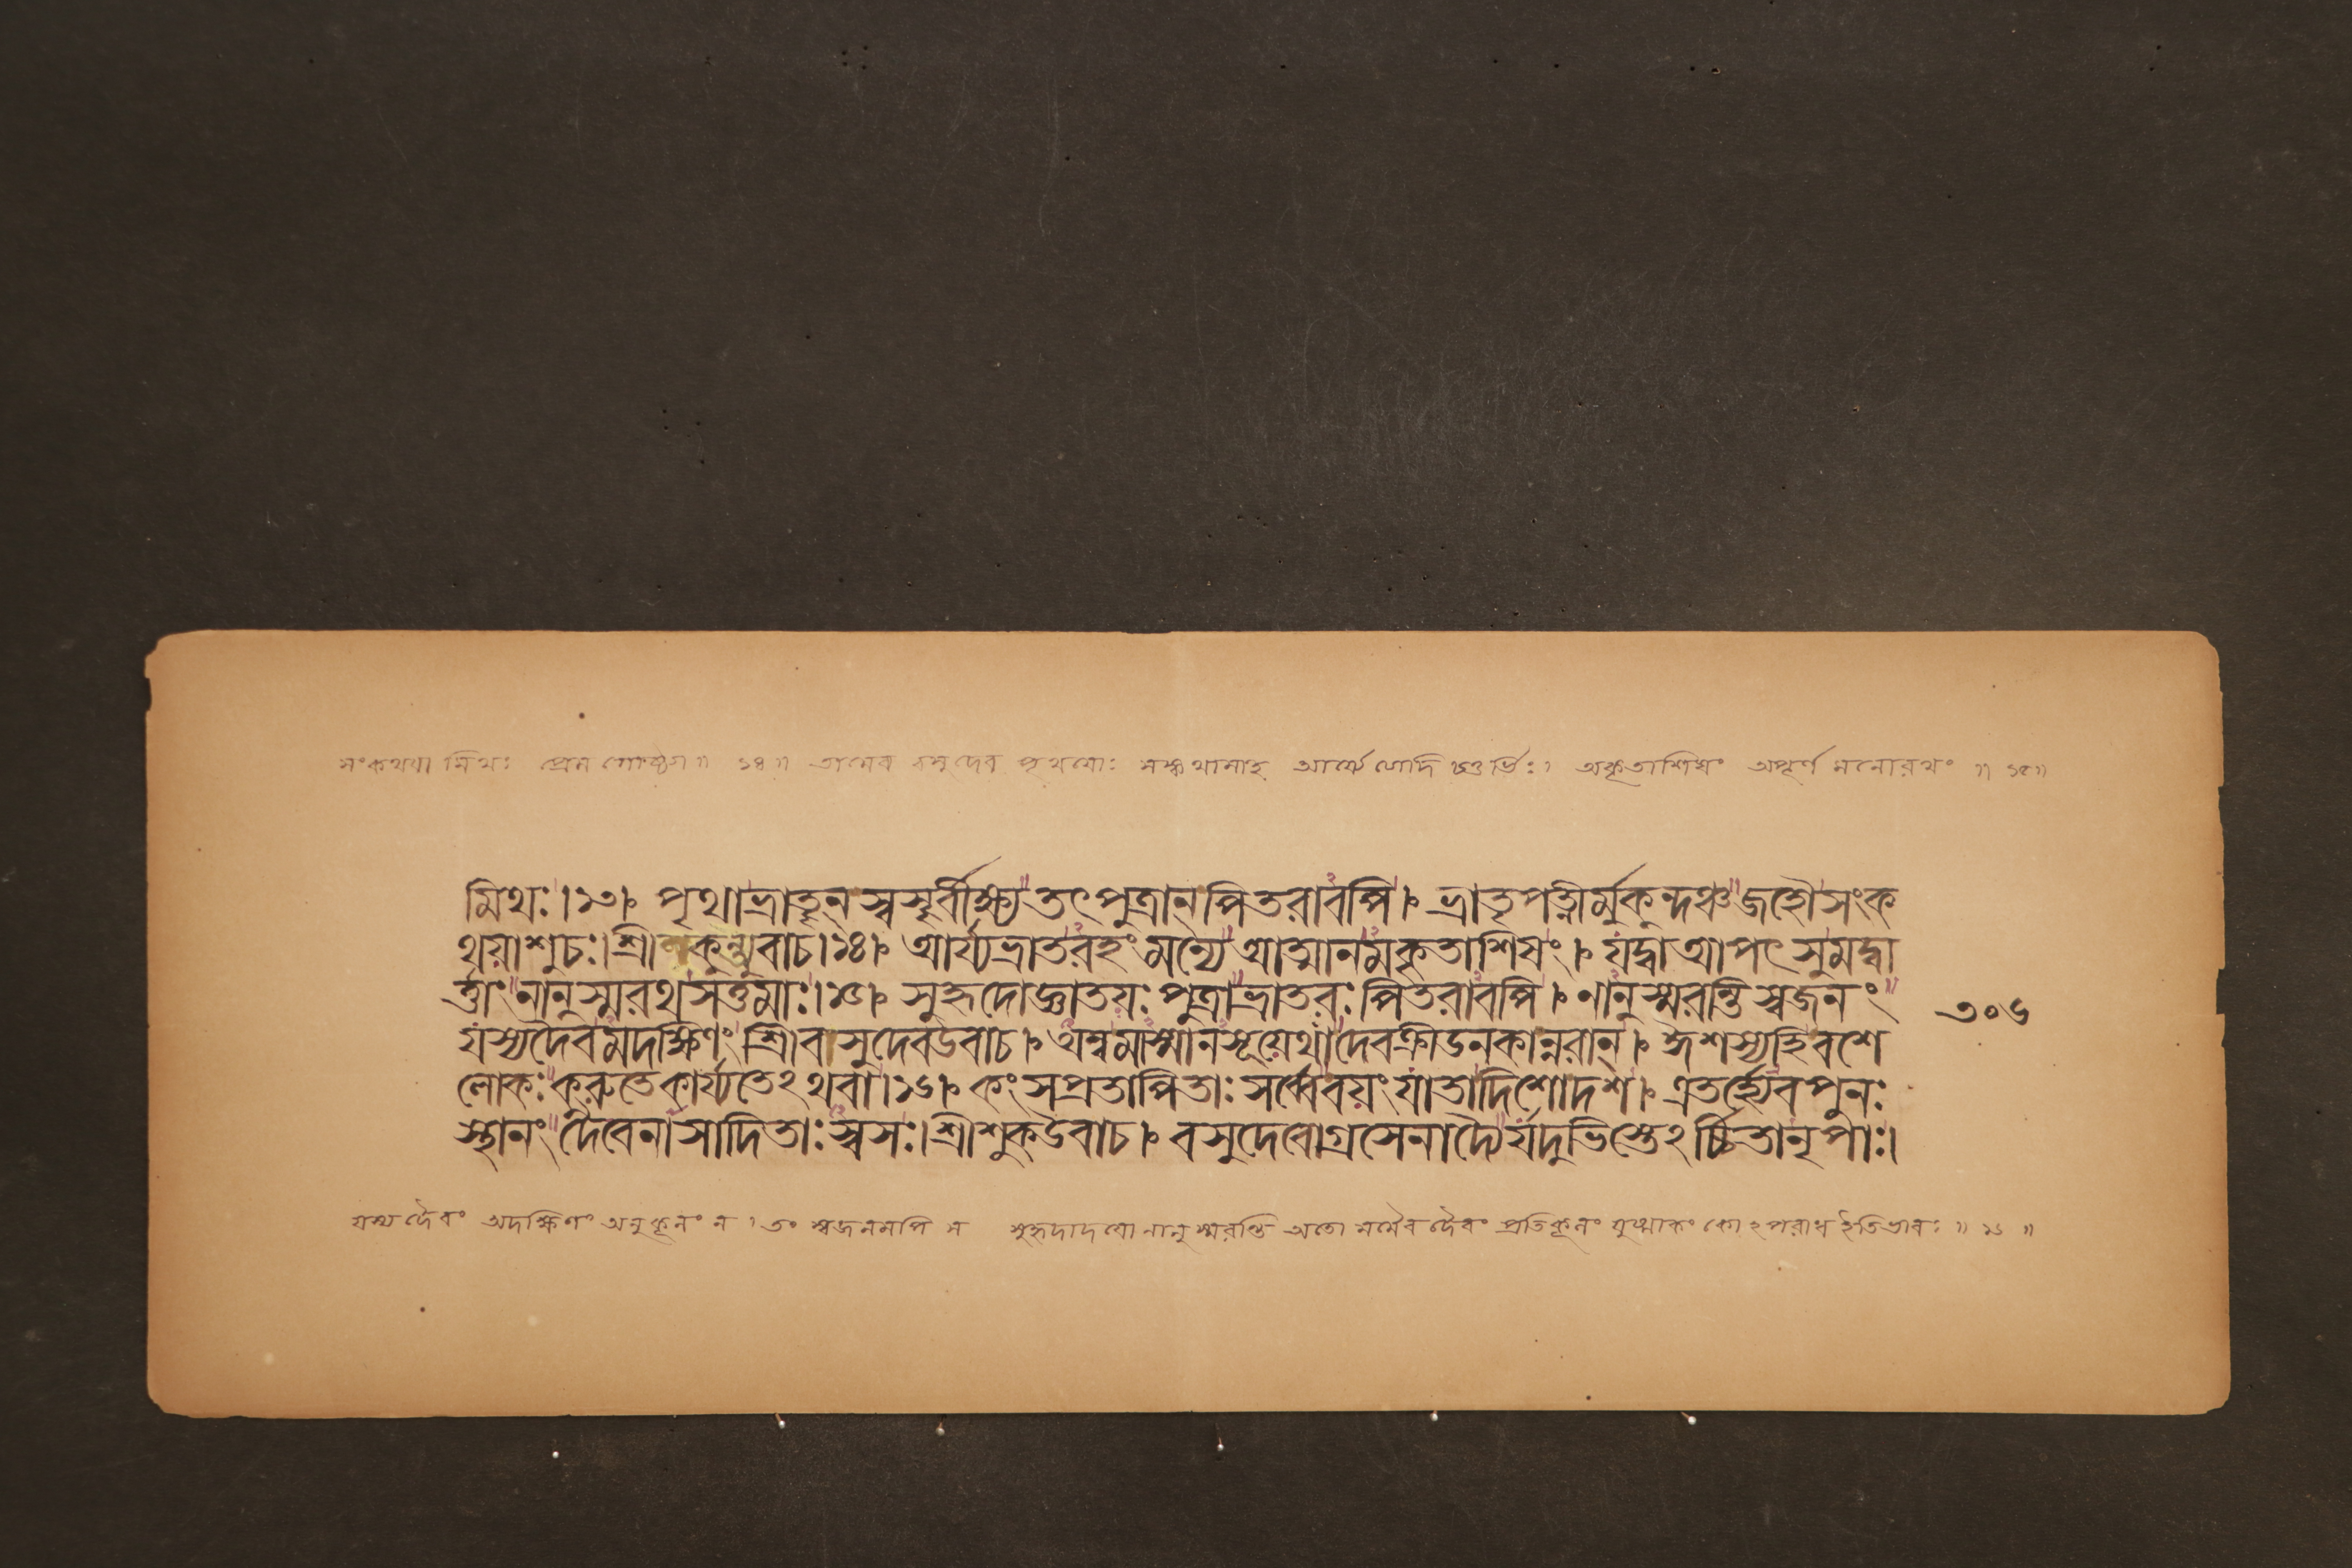 সংকথযা মিথঃ প্রেম গোষ্ঠ্যা ॥ ১৪ ॥ তামেব বসুদেব পৃথযোঃ সঙ্কথামাহ আর্য্যেত্যাদি চতুর্ভিঃ। অকৃতাশিষং অপূর্ণ মনোরথং ॥ ১৫॥
মিথঃ।১৩। পৃথাভ্রাতৄন্ স্বসৄর্বীক্ষ্য তৎপুত্রান্পিতরাবপি। ভ্রাতৃপত্নীর্মুকুন্দঞ্চ জহৌসংক
থয়াশুচঃ।শ্রী কুন্ত্যুবাচ।১৪। আর্য্যভ্রাতরহং মন্যে আত্মানমকৃতাশিষং। যদ্বা আপৎ সুমদ্বা
র্ত্তাং নানুস্মরথ সত্তমাঃ।১৫। সুহৃদোজ্ঞাতয়ঃ পুত্রাভ্রাতরঃ পিতরাবপি। নানুস্মরন্তি স্বজনং
যস্যদৈবমদক্ষিণং শ্রীবসুদেবউবাচ। অম্বমাস্মানসূয়েথা দেবক্রীডনকান্নরান্। ঈশস্যহিবশে
লোকঃ কুরুতেকার্য্যতেঽথবা।১৬। কংসপ্রতাপিতাঃ সর্ব্বেবয়ং যাতাদিশোদশ। এতর্হ্যেবপুনঃ
স্থানং দৈবেনাসাদিতাঃ স্বসঃ।শ্রীশুকউবাচ। বসুদেবোগ্রসেনাদ্যৈর্যদুভিস্তেঽর্চ্চিতানৃপাঃ।
৩০৬
যস্য দৈবং অদক্ষিণং অনুকূলং ন। তং স্বজনমপি ন সুহৃদাদযো নানুস্মরন্তি অতো মমৈব দৈবং প্রতিকূলং যুষ্মাকং কোঽপরাধ ইতিভাবঃ ॥ ১৬ ॥